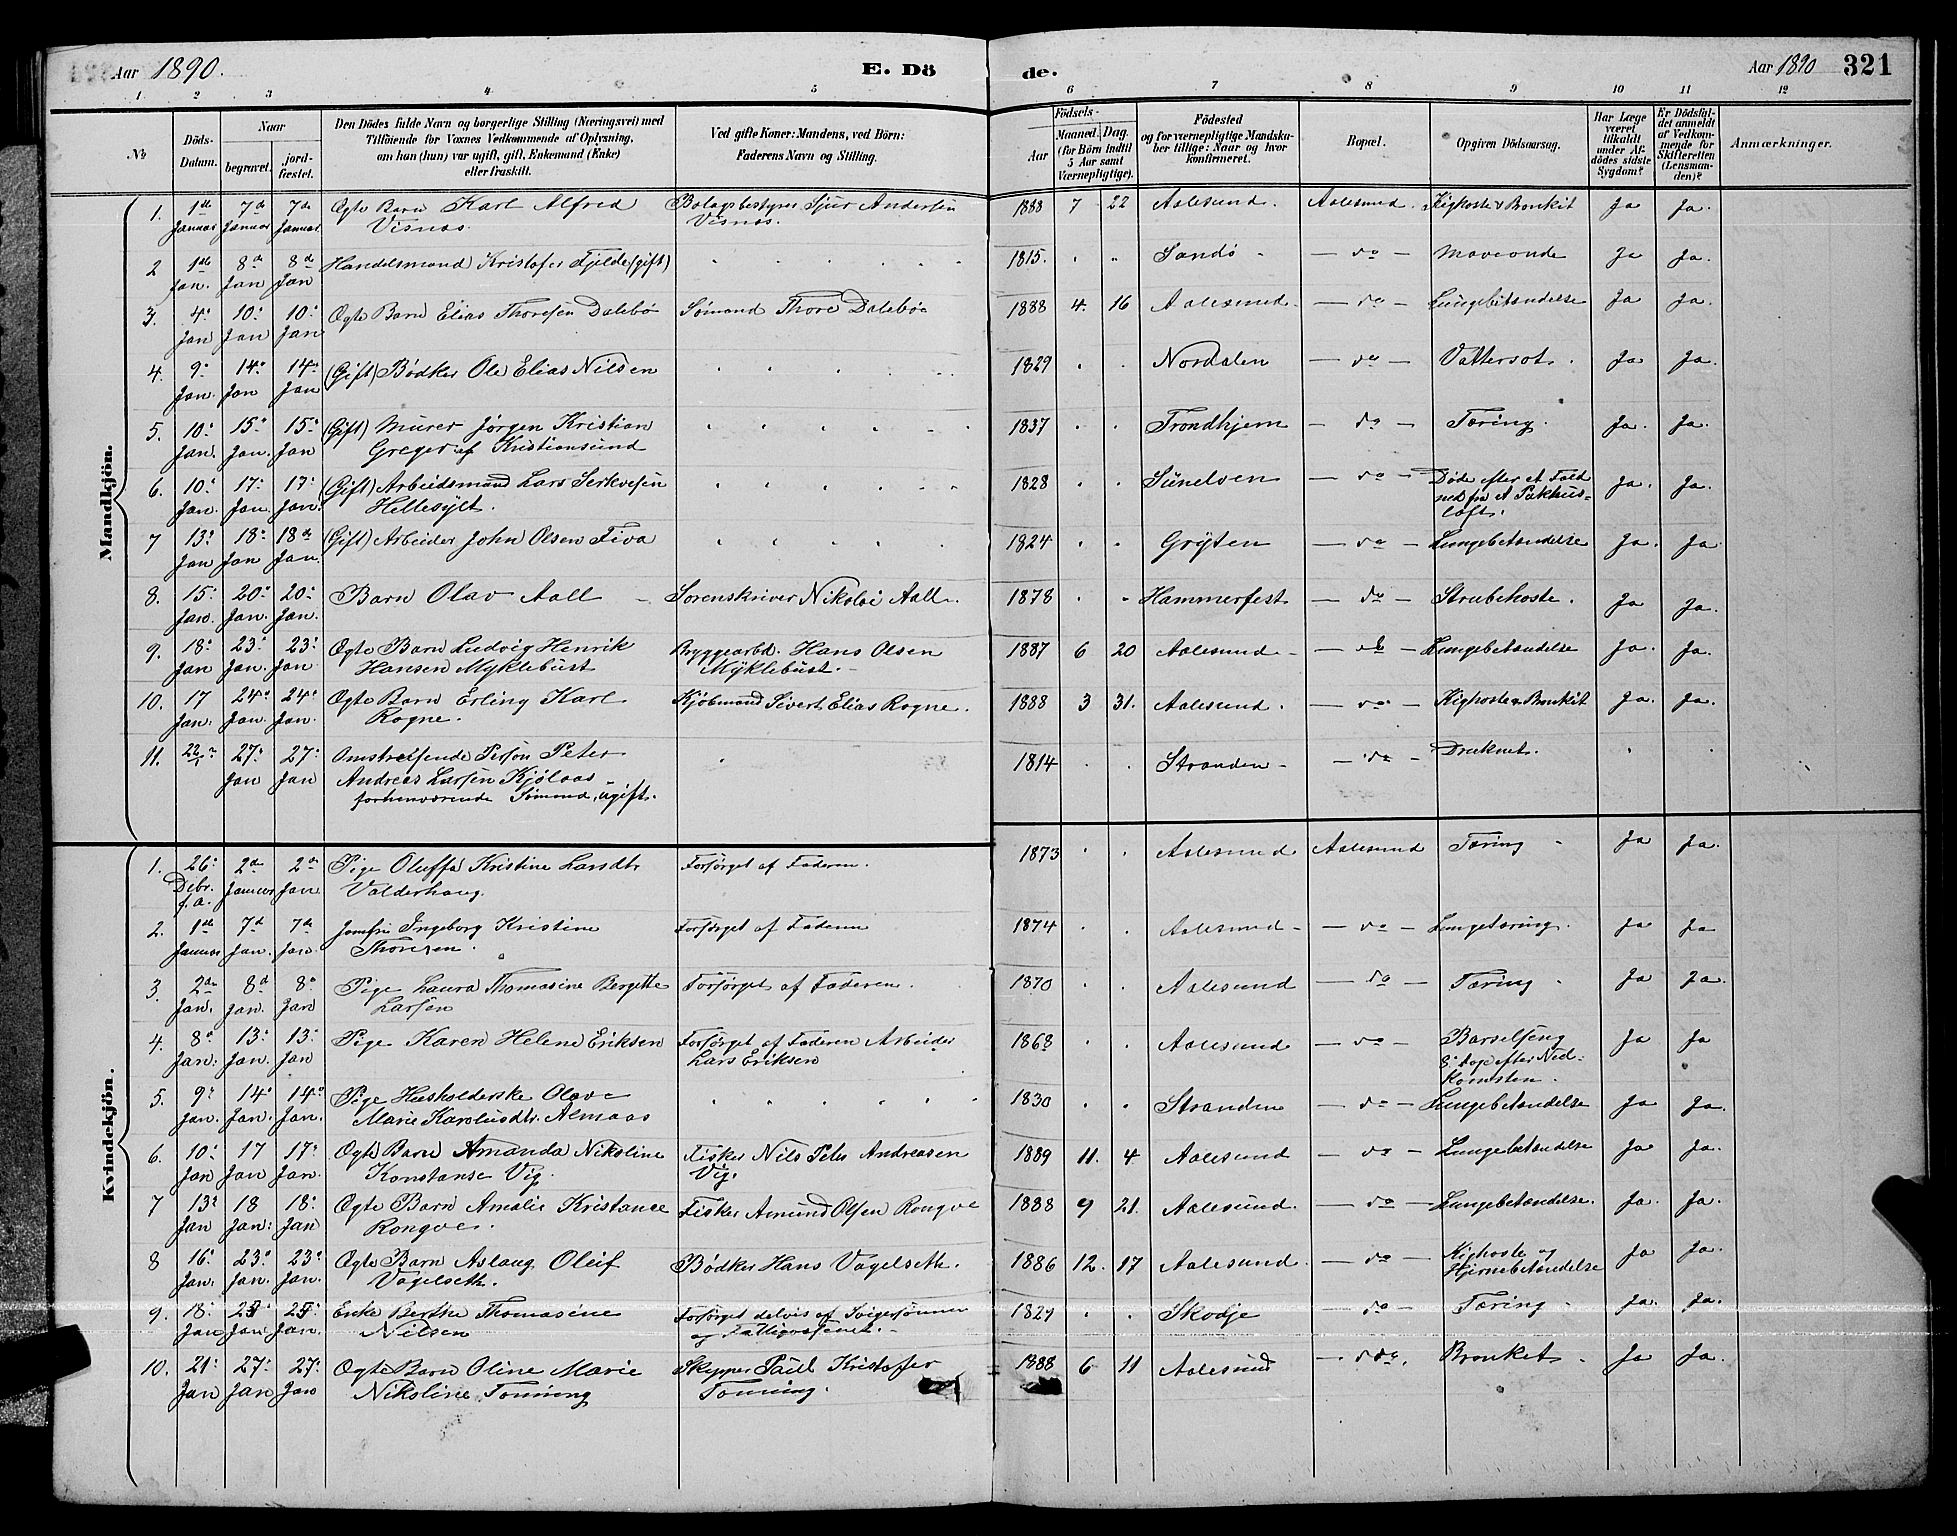 Aar 1890.
E. Dö
de.
Aar 1890
321
1 2 3 4 5 6 7 8 9 10 11 12
No
Döds-Datum.
Naar
begravet.
jord-fæstet.
Den Dödes fulde Navn og borgerlige Stilling (Næringsvei) med
Tilföiende for Voxnes Vedkommende af Oplysning,
om han (hun) var ugift, gift, Enkemand (Enke)
eller fraskilt.
Ved gifte Koner: Mandens, ved Börn:
Faderens Navn og Stilling.
Födsels-
Aar
Maaned. Dag.
(for Börn indtil
5 Aar samt
Værnepligtige).
Födested
og for værnepligtige Mandska-
ber tillige: Naar og hvor
konfirmeret.
Bopæl.
Opgiven Dödsaarsag.
Har Læge
været
tilkaldt
under Af-
dödes sidste
Sygdom?
Er Dödsfal-
det anmeldt
af Vedkom-
mende for
Skifteretten
(Lensman-
den)?
Anmærkninger.
Mandkjön.
1. 1ste Januar 7de Januar 7de Januar Ægte Barn Karl Alfred Visnæs. Bolagsbestyrer Sjur Andersen Visnæs. 1888 7 22 Aalesund. Aalesund. Kighoste & Bronkit Ja Ja.
2 1ste Jan. 8de Jan 8de Jan Handelsmand Kristofer Fjelde (gift) 1815. Sandø - do - Mavevonde Ja Ja.
3. 4de Jan 10de Jan 10de Jan Ægte Barn Elias Thoresen Dalebø Sømand Thore Dalebø 1888 4. 16 Aalesund. - do - Lungebetændelse Ja Ja.
4. 9de Jan. 14de Jan 14de Jan (Gift) Bødker Ole Elias Nilsen 1829 Nordalen - do - Vattersot. Ja Ja.
5. 10de Jan. 15de Jan. 15de Jan (Gift) Murer Jørgen Kristian Greger af Kristiansund 1837 Trondhjem - do - Tæring. Ja. Ja.
6. 10de Jan. 17de Jan. 17de Jan. (Gift) Arbeidsmand Lars Hellesylt. 1828 Sunelven - do - Døde efter et Fald ned fra et Pakhus-loft. Ja. Ja.
7 13de Jan 18de Jan 18de Jan. (Gift) Arbeider John Olsen Tiva 1824 Gryten - do - Lungebetændelse Ja. Ja
8. 15de Jan. 20de Jan. 20de Jan. Barn Olav Aall Sorenskriver Nikolai Aall. 1878 Hammerfest - do - Strubehoste. Ja Ja.
9. 18de Jan 23de Jan. 23de Jan Ægte Barn Ludvig Henrik Hansen Myklebust Bryggearbd. Hans Olsen Myklebust. 1887 6 20 Aalesund - do - Lungebetændelse Ja. Ja.
10. 17 Jan. 24de Jan. 24de Jan. Ægte Barn Erling Karl Rogne. Kjøbmand Sivert Elias Rogne. 1888 3 31. Aalesund. - do - Kighoste & Bronkit Ja. Ja.
11. 22/1 27de Jan 27de Jan Omstreifende Person Peter Andreas Larsen Kjølaas forhenværende Sømand, ugift. 1814 Stranden - do - Druknet.
Kvindekjön.
1. 26de Dcbr. f.a. 2den Januar 2den Jan Pige Oluffa Kristine Larsdtr Valderhaug. Forsørget af Faderen. 1873 Aalesund Aalesund Tæring Ja Ja.
2. 1ste Januar 7de Jan. 7de Jan. Jomfru Ingeborg Kristine Thoresen. Forsørget af Faderen 1874 Aalesund - do - Lungetæring. Ja Ja
3. 2den Jan. 8de Jan. 8de Jan Pige Laura Thomasine Bergitte Larsen Forsørget af Faderen. 1870 Aalesund - do - Tæring Ja Ja.
4. 8de Jan. 13de Jan. 13de Jan Pige Karen Helene Eriksen Forsørget af Faderen Arbeider Lars Eriksen 1868 Aalesund - do - Barselseng 8 dage efter Ned-komsten. Ja Ja
5. 9de Jan. 14de Jan. 14de Jan. Pige Husholderske Olave Marie Karolusdtr. Almaas 1830 Stranden - do - Lungebetændelse Ja Ja.
6. 10de Jan 17 Jan 17de Jan. Ægte Barn Amanda Nikoline Konstanse Vig. Fisker Nils Peter Andreasen Vig. 1889 11. 4 Aalesund - do - Lungebetændelse Ja Ja.
7 13de Jan 18 Jan. 18de Jan Ægte Barn Amalie Kristance Rongve. Fisker Amund Olsen Rongve 1888 9 21. Aalesund. - do - Lungebetændelse. Ja. Ja.
8 16de Jan. 23de Jan. 23de Jan. Ægte Barn Aslaug Oluf Vagelseth. Bødker Hans Vagelseth. 1886 12. 17 Aalesund. - do - Kighoste og Hjernebetændelse Ja Ja.
9. 18de Jan 25de Jan 25de Jan. Enke Berthe Thomasine Nilsen Forsørget delvis af Svigersønnen og Fattigvæsenet. 1829 Skodje - do - Tæring Ja. Ja.
10. 21de Jan 27de Jan 27de Jan Ægte Barn Oline Marie Nikoline Tonning Skipper Paul Kristofer Tonning. 1888 6 11 Aalesund - do - Bronket Ja Ja.